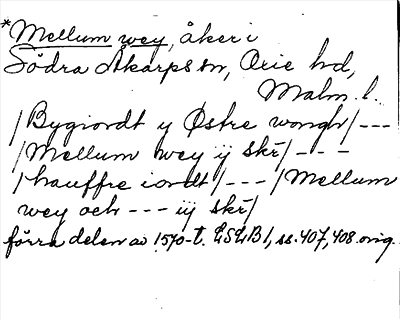 *Mellum wey, åker i
Södra Åkarps sn, Oxie hd,
Malm. l.
/Bygiordt y Østre wongh/---
/Mellum wey ij skr/---
/hauffre iordt/---/Mellum
wey och --- iij skr/
förra delen av 1570-t. LSLB1, ss. 407, 408. orig.